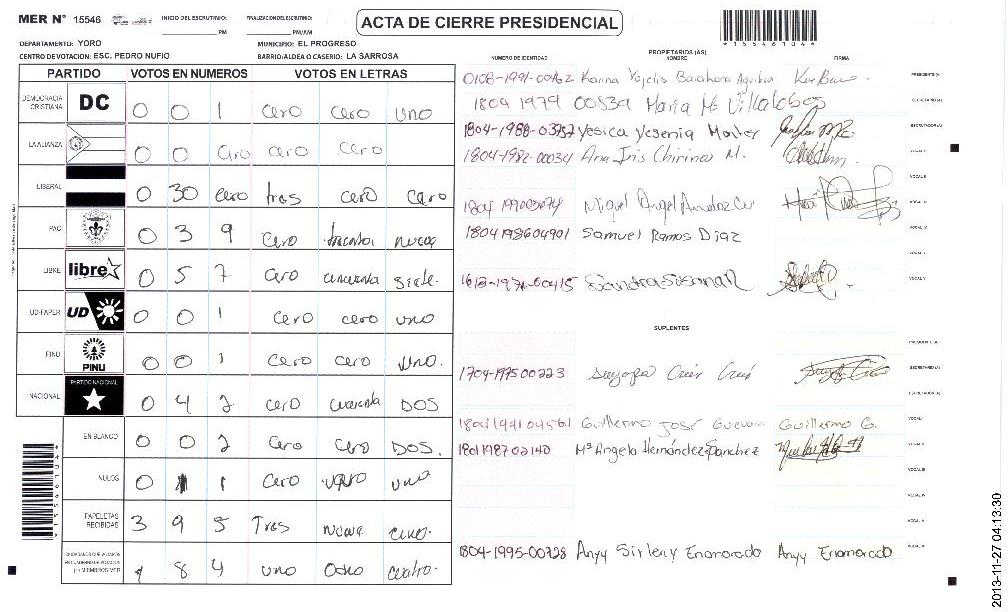 MER N° 15546 INICIO DEL ESCRUTINIO: PM FINALIZACION DEL ESCRUTINIO: PM/AM
ACTA DE CIERRE PRESIDENCIAL
*155461044*
DEPARTAMENTO: YORO MUNICIPIO: EL PROGRESO
CENTRO DE VOTACION: ESC. PEDRO NUFIO BARRIO/ALDEA O CASERIO: LA SARROSA
PROPIETARIOS (AS)
NUMERO DE IDENTIDAD NOMBRE FIRMA
PARTIDO VOTOS EN NUMEROS VOTOS EN LETRAS
DEMOCRACIA CRISTIANA DC 0 0 1 cero cero uno
LA ALIANZA 0 0 cero cero cero
LIBERAL 0 30 cero tres cero cero
PAC 0 3 9 cero treinta nueve
LIBRE libre 0 5 7 cero cincuenta siete.
UD-FAPER UD 0 0 1 cero cero uno
PINU PINU 0 0 1 cero cero uno.
NACIONAL PARTIDO NACIONAL 0 4 2 cero cuarenta DOS
EN BLANCO 0 0 2 cero cero DOS.
NULOS 0 1 1 cero uno
PAPELETAS RECIBIDAS 3 9 5 Tres nueve cinco.
CIUDADANOS QUE VOTARON EN CUADERNO DE VOTACION (+) MIEMBROS MER 1 8 4 uno Ocho cuatro.
0108-1991-00462 Karina Yojelis Barahona PRESIDENTE(A)
1804 1979 00539 Maria Ms Villalobos SECRETARIO(A)
1804-1988-03757 Yesica Yesenia ESCRUTADOR(A)
1804-1982-00034 Ana Iris Chirinos M.
Miguel Angel
1804198604901 Samuel Ramos Diaz
SUPLENTES
1704-1975 00223 Suyapa Cruz Cruz SECRETARIO(A)
Guillermo José Guevara Guillermo G.
1801198702140 Mª Angela Hernández Sanchez
1804-1995-00728 Anyy Sirleny Enamorado Anyy Enamorado
2013-11-27 04:13:30